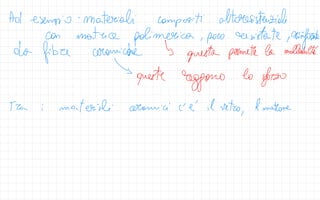 Ad esempio: materiali compositi altoresistenziali
con matrice polimerica, poco resistente, rinforzata
da fibre ceramiche
questa permette la
queste reggono lo sforzo
Tra i materiali ceramici c'è il vetro, il mattone